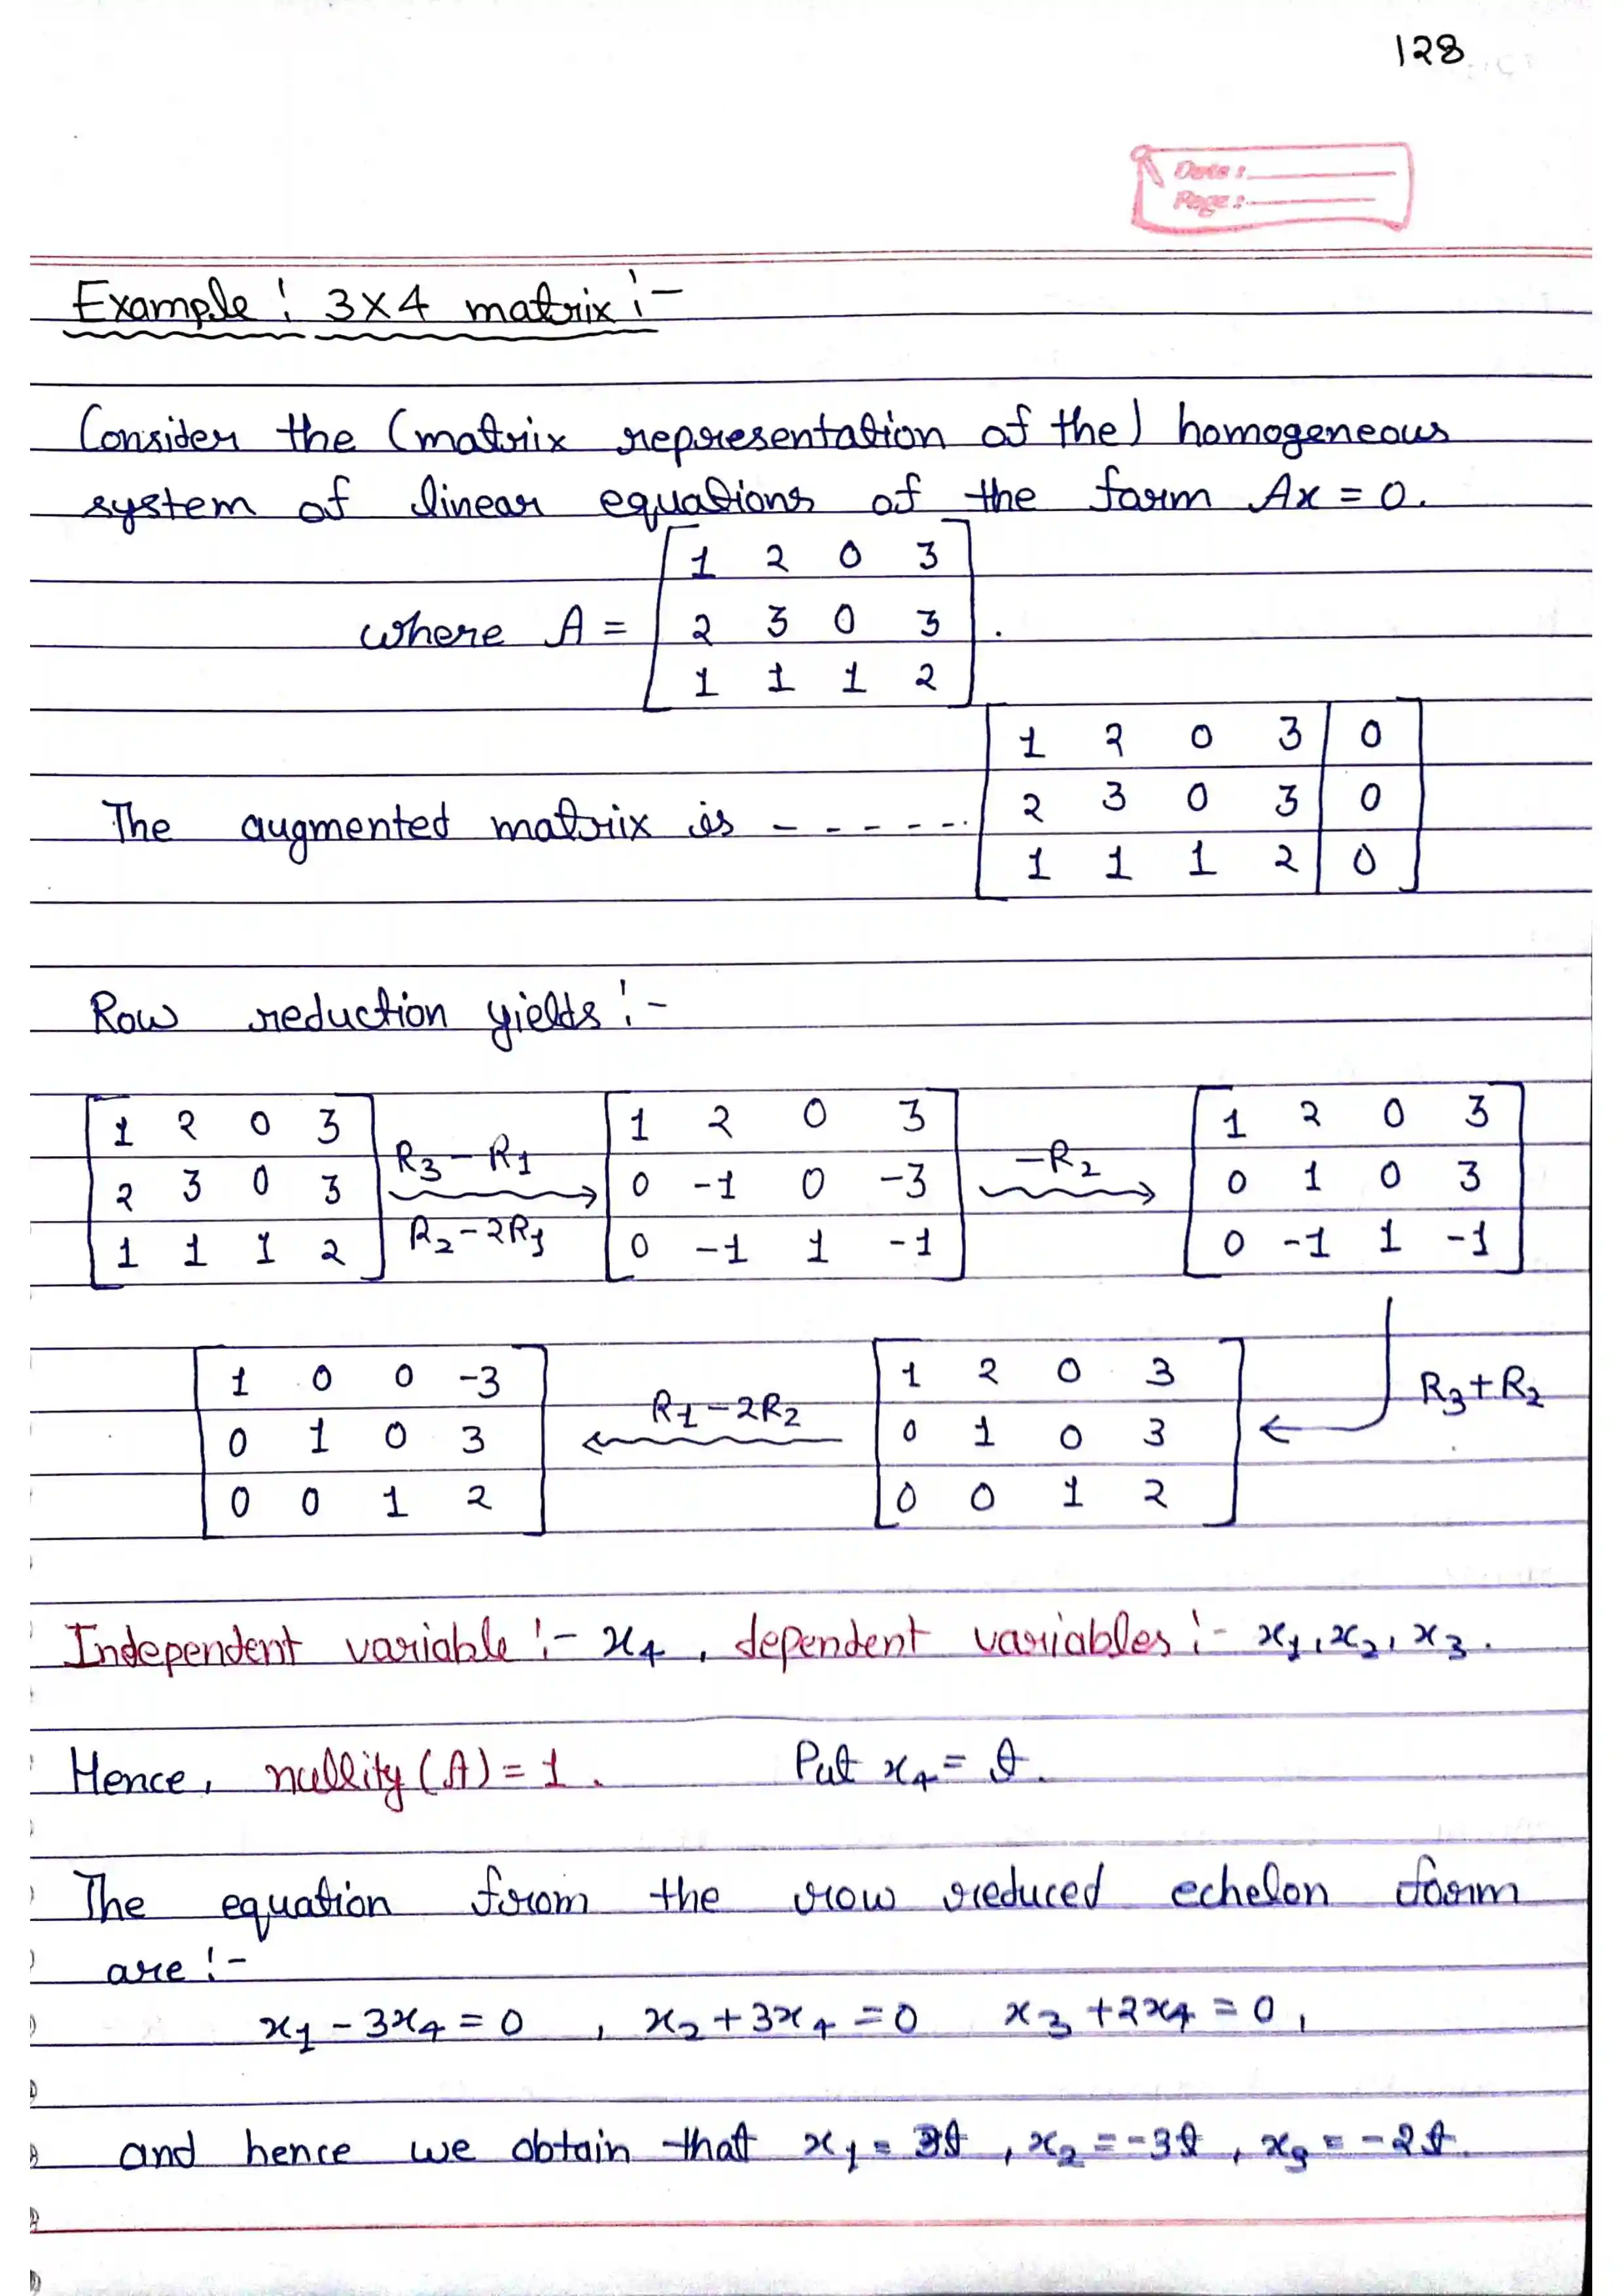 128
Date :
Page :
Example : 3×4 matrix :-
Consider the (matrix representation of the) homogeneous
system of linear equations of the form Ax = 0.
1 2 0 3
where A = 2 3 0 3 .
1 1 1 2
1 2 0 3 | 0
2 3 0 3 | 0
The augmented matrix is - - - - - -.
1 1 1 2 | 0
Row reduction yields :-
1 2 0 3 R3 - R1 1 2 0 3 -R2 1 2 0 3
2 3 0 3 → 0 -1 0 -3 → 0 1 0 3
1 1 1 2 R2 - 2R1 0 -1 1 -1 0 -1 1 -1
1 0 0 -3 R1 - 2R2 1 2 0 3 R3 + R2
0 1 0 3 ← 0 1 0 3 ←
0 0 1 2 0 0 1 2
Independent variable :- x4 , dependent variables :- x1, x2, x3 .
Hence, nullity (A) = 1 . Put x4 = t.
The equation from the row reduced echelon form
are :-
x1 - 3x4 = 0 , x2 + 3x4 = 0 x3 + 2x4 = 0 ,
and hence we obtain that x1 = 3t , x2 = -3t , x3 = -2t.